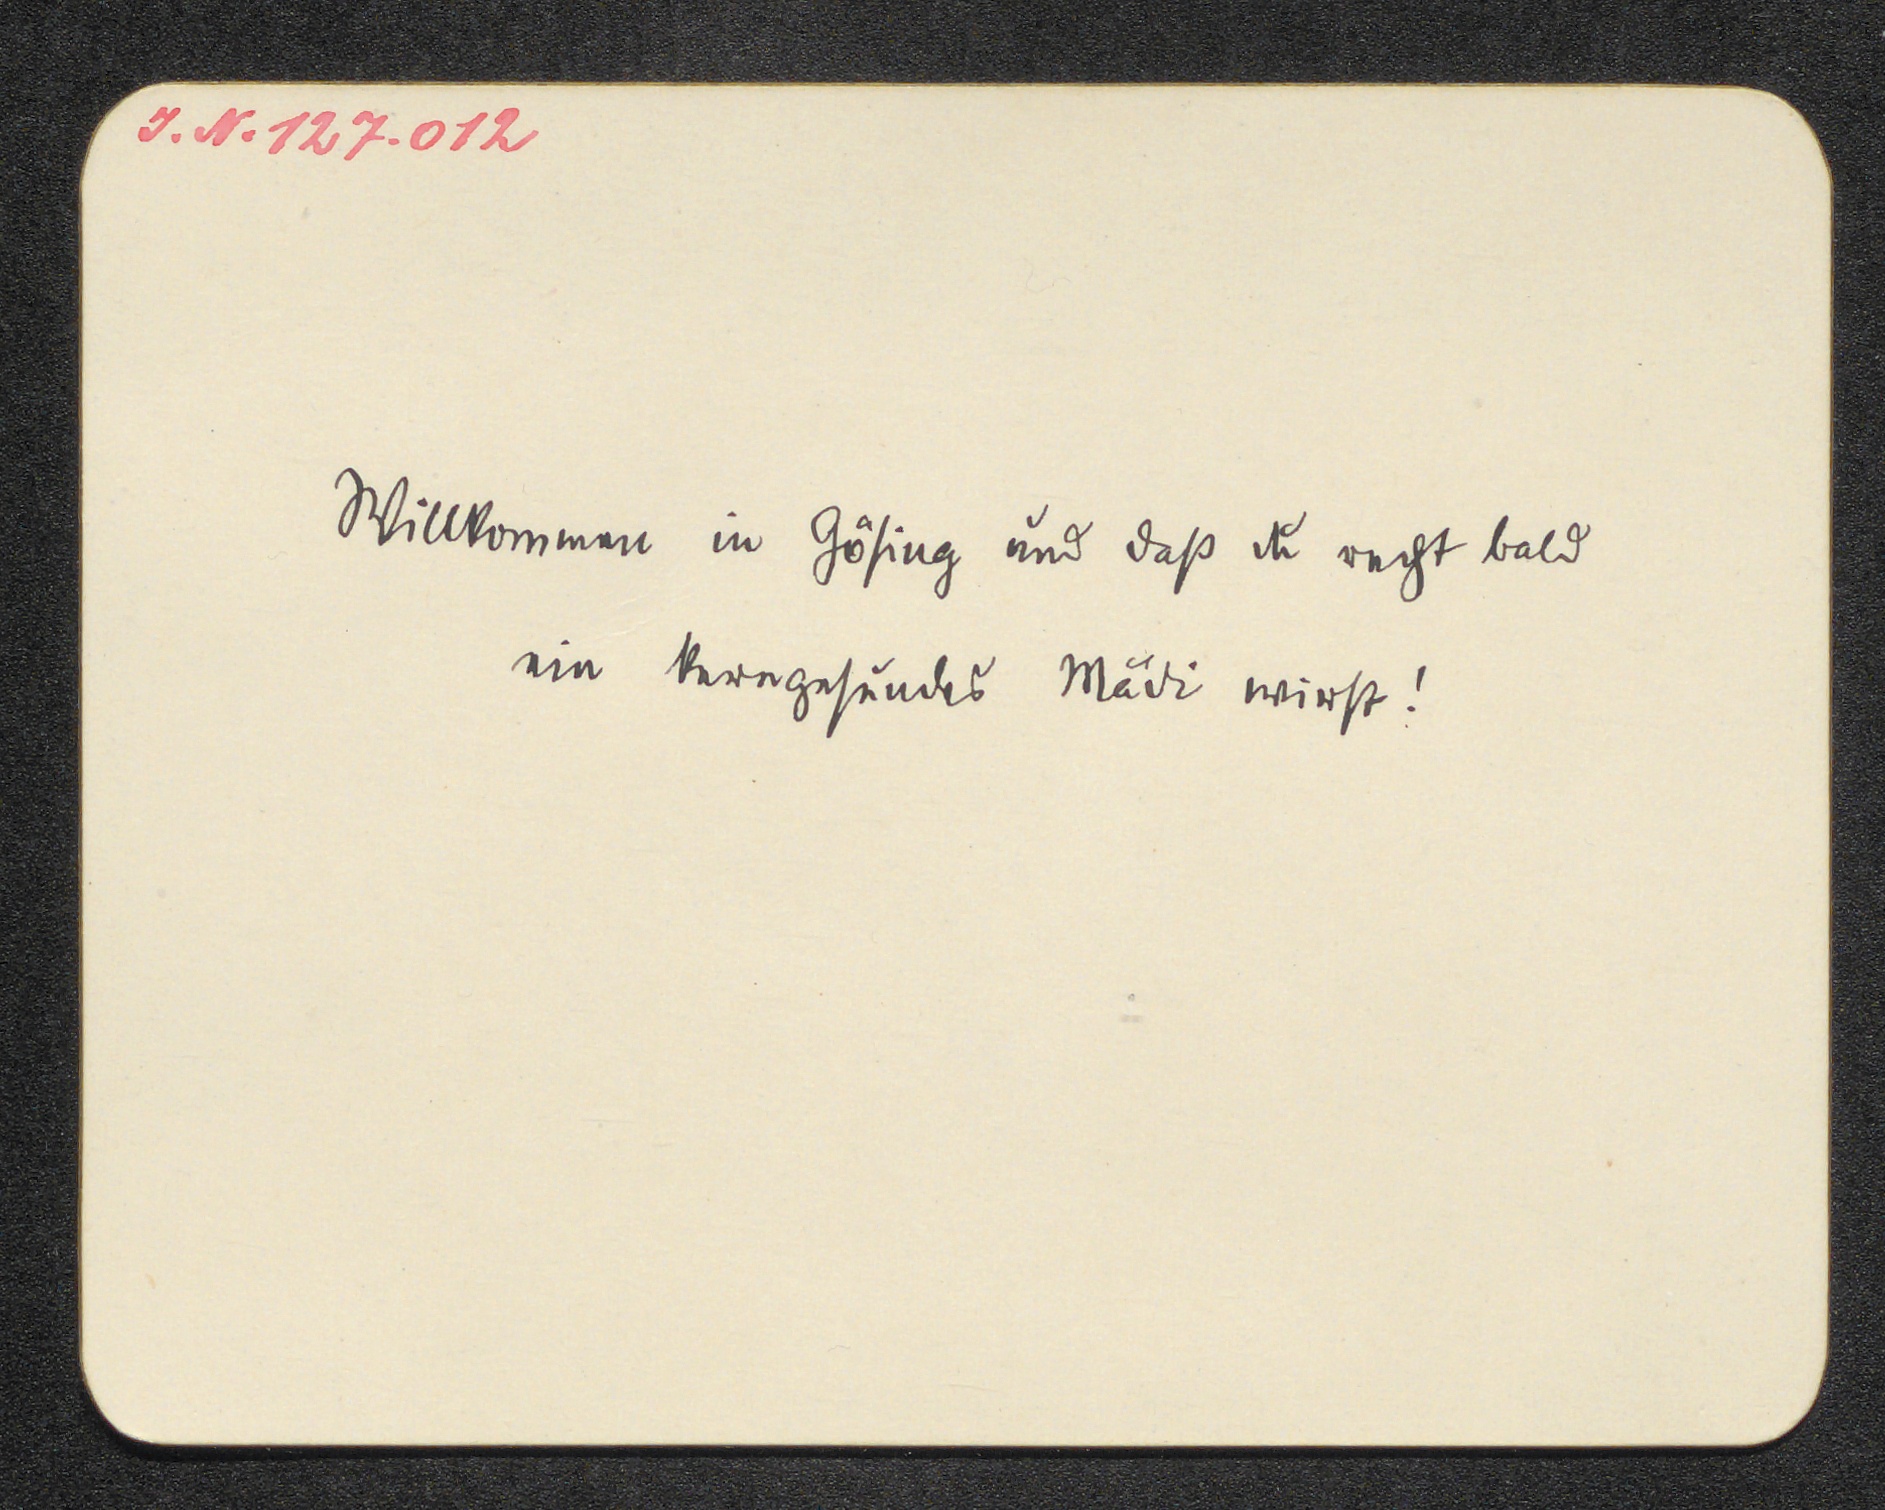 I. N. 127.012
Willkommen in Gösing und daß du recht bald
ein kerngesundes Mädi wirst!